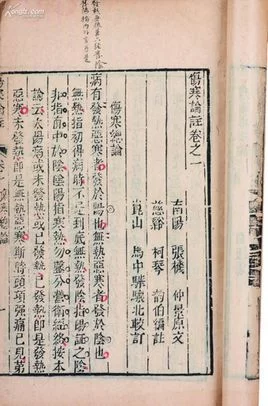 傷寒論註卷之一
南陽 張機 仲景原文
慈谿 柯琴 韻伯編註
崑山 馬中驊驤北較訂
傷寒總論
病有發熱惡寒者發於陽也無熱惡寒者發於陰也
無熱指初得病時不是到底無熱發陰指陽證之陰
非指直中於陰陰陽指寒熱勿鑿分營衛經絡按本
論云太陽病或未發熱或已發熱已發熱即是發熱
惡寒未發熱即是無熱惡寒斯時頭項強痛已見第